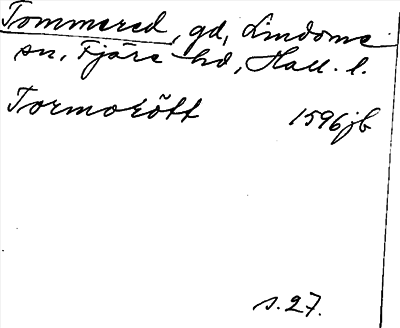 Tommered, gd, Lindome
sn, Fjäre hd, Hall. l.
Tormorött 1596 jb
s. 27.